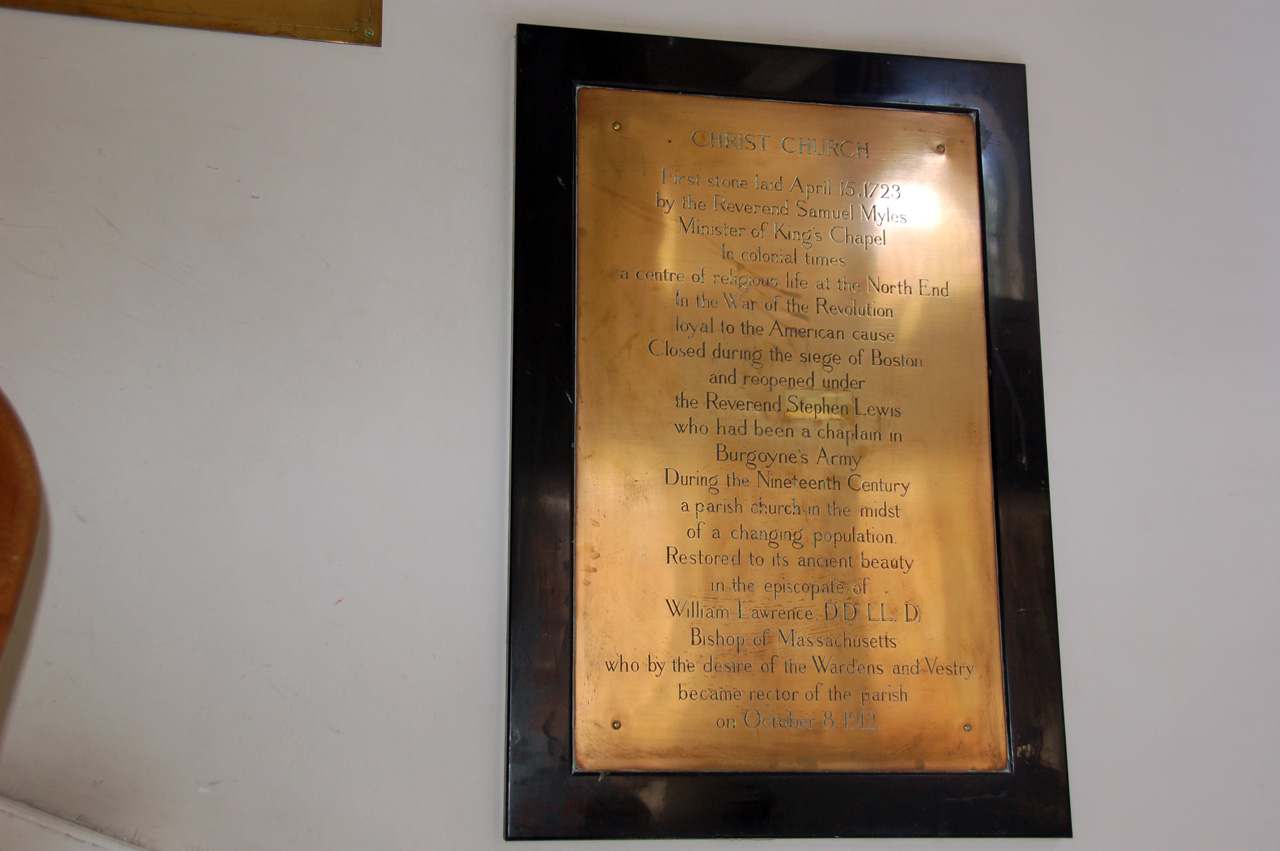 CHRIST CHURCH
First stone laid April 15, 1723
by the Reverend Samuel Myles
Minister of King's Chapel
In colonial times
a centre of religious life at the North End
In the War of the Revolution
loyal to the American cause
Closed during the siege of Boston
and reopened under
the Reverend Stephen Lewis
who had been a chaplain in
Burgoyne's Army
During the Nineteenth Century
a parish church in the midst
of a changing population.
Restored to its ancient beauty
in the episcopate of
William Lawrence, D.D. LL. D.
Bishop of Massachusetts
who by the desire of the Wardens and Vestry
became rector of the parish
on October 8, 1912.